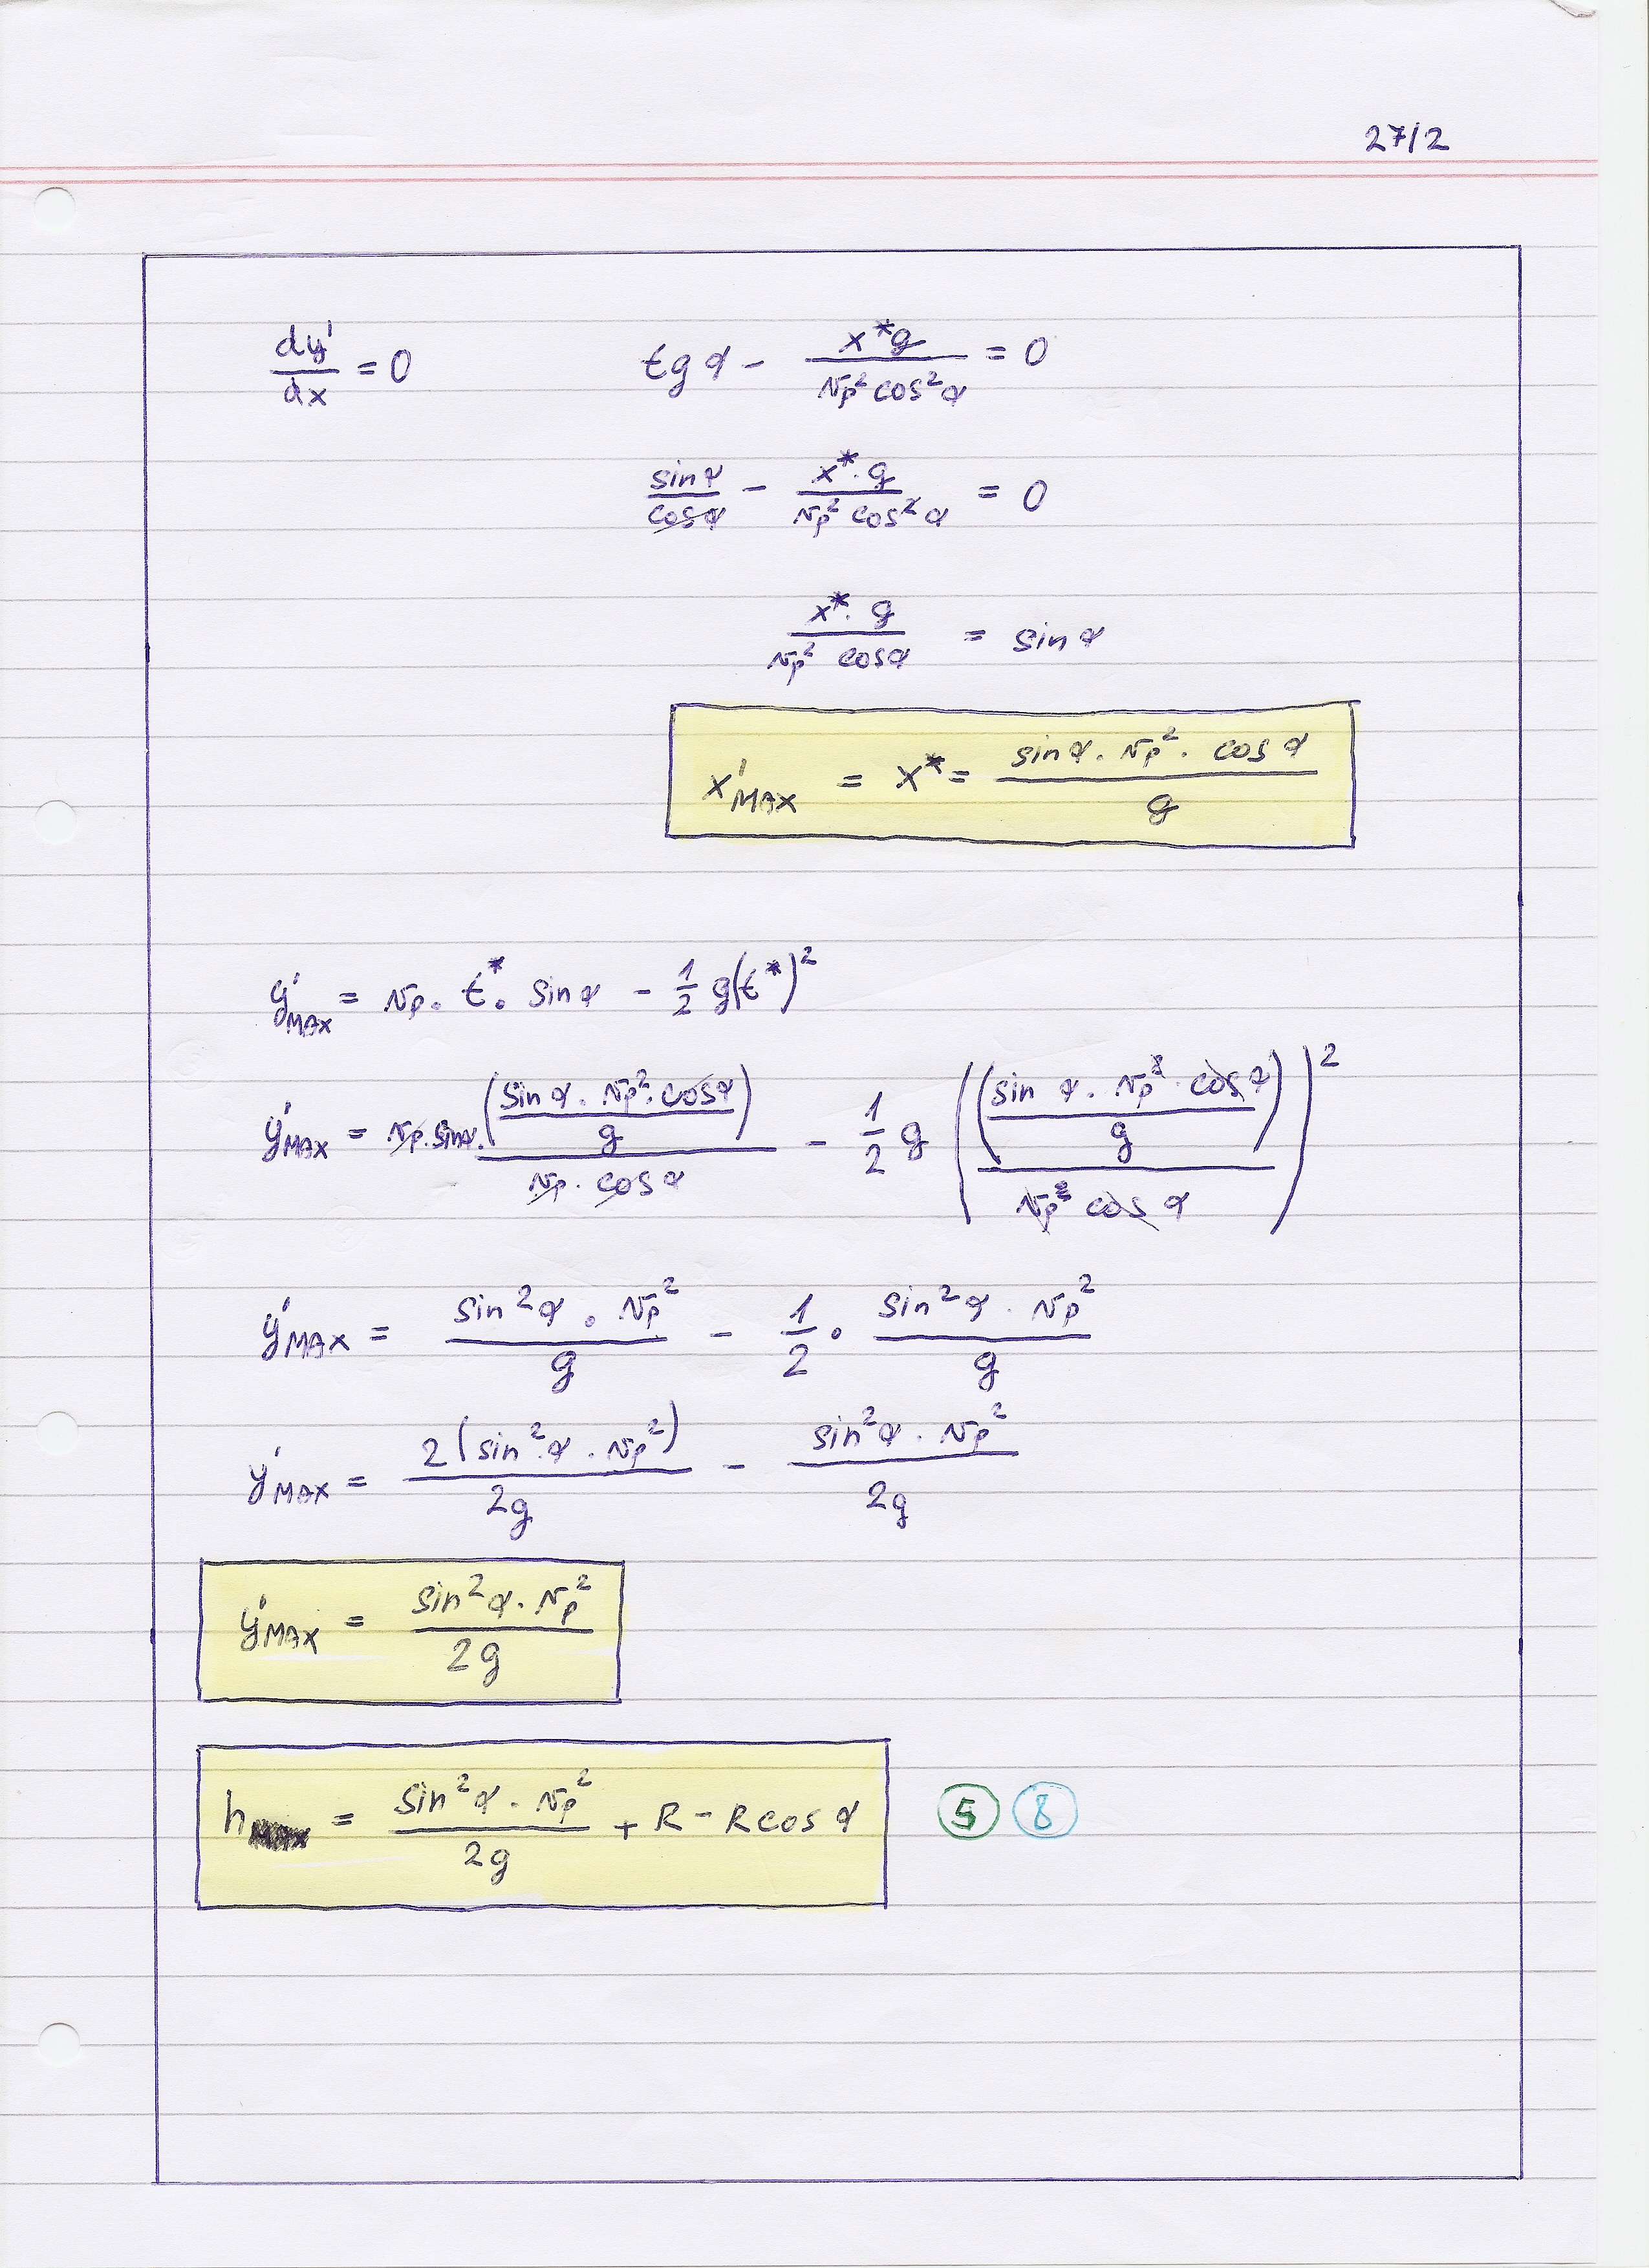 27/2
dy'/dx = 0 tg α - x*g / (Vp² cos²α) = 0
sin α / cos α - x*·g / (Vp² cos²α) = 0
x*·g / (Vp² cos α) = sin α
x'MAX = x* = sin α · Vp² · cos α / g
y'MAX = Vp · t* · sin α - 1/2 g(t*)²
y'MAX = Vp · sin α · (sin α · Vp² · cos α / g) / (Vp · cos α) - 1/2 g ((sin α · Vp² · cos α / g) / (Vp cos α))²
y'MAX = sin²α · Vp² / g - 1/2 · sin²α · Vp² / g
y'MAX = 2(sin²α · Vp²) / 2g - sin²α · Vp² / 2g
y'MAX = sin²α · Vp² / 2g
h = sin²α · Vp² / 2g + R - R cos α 5 8